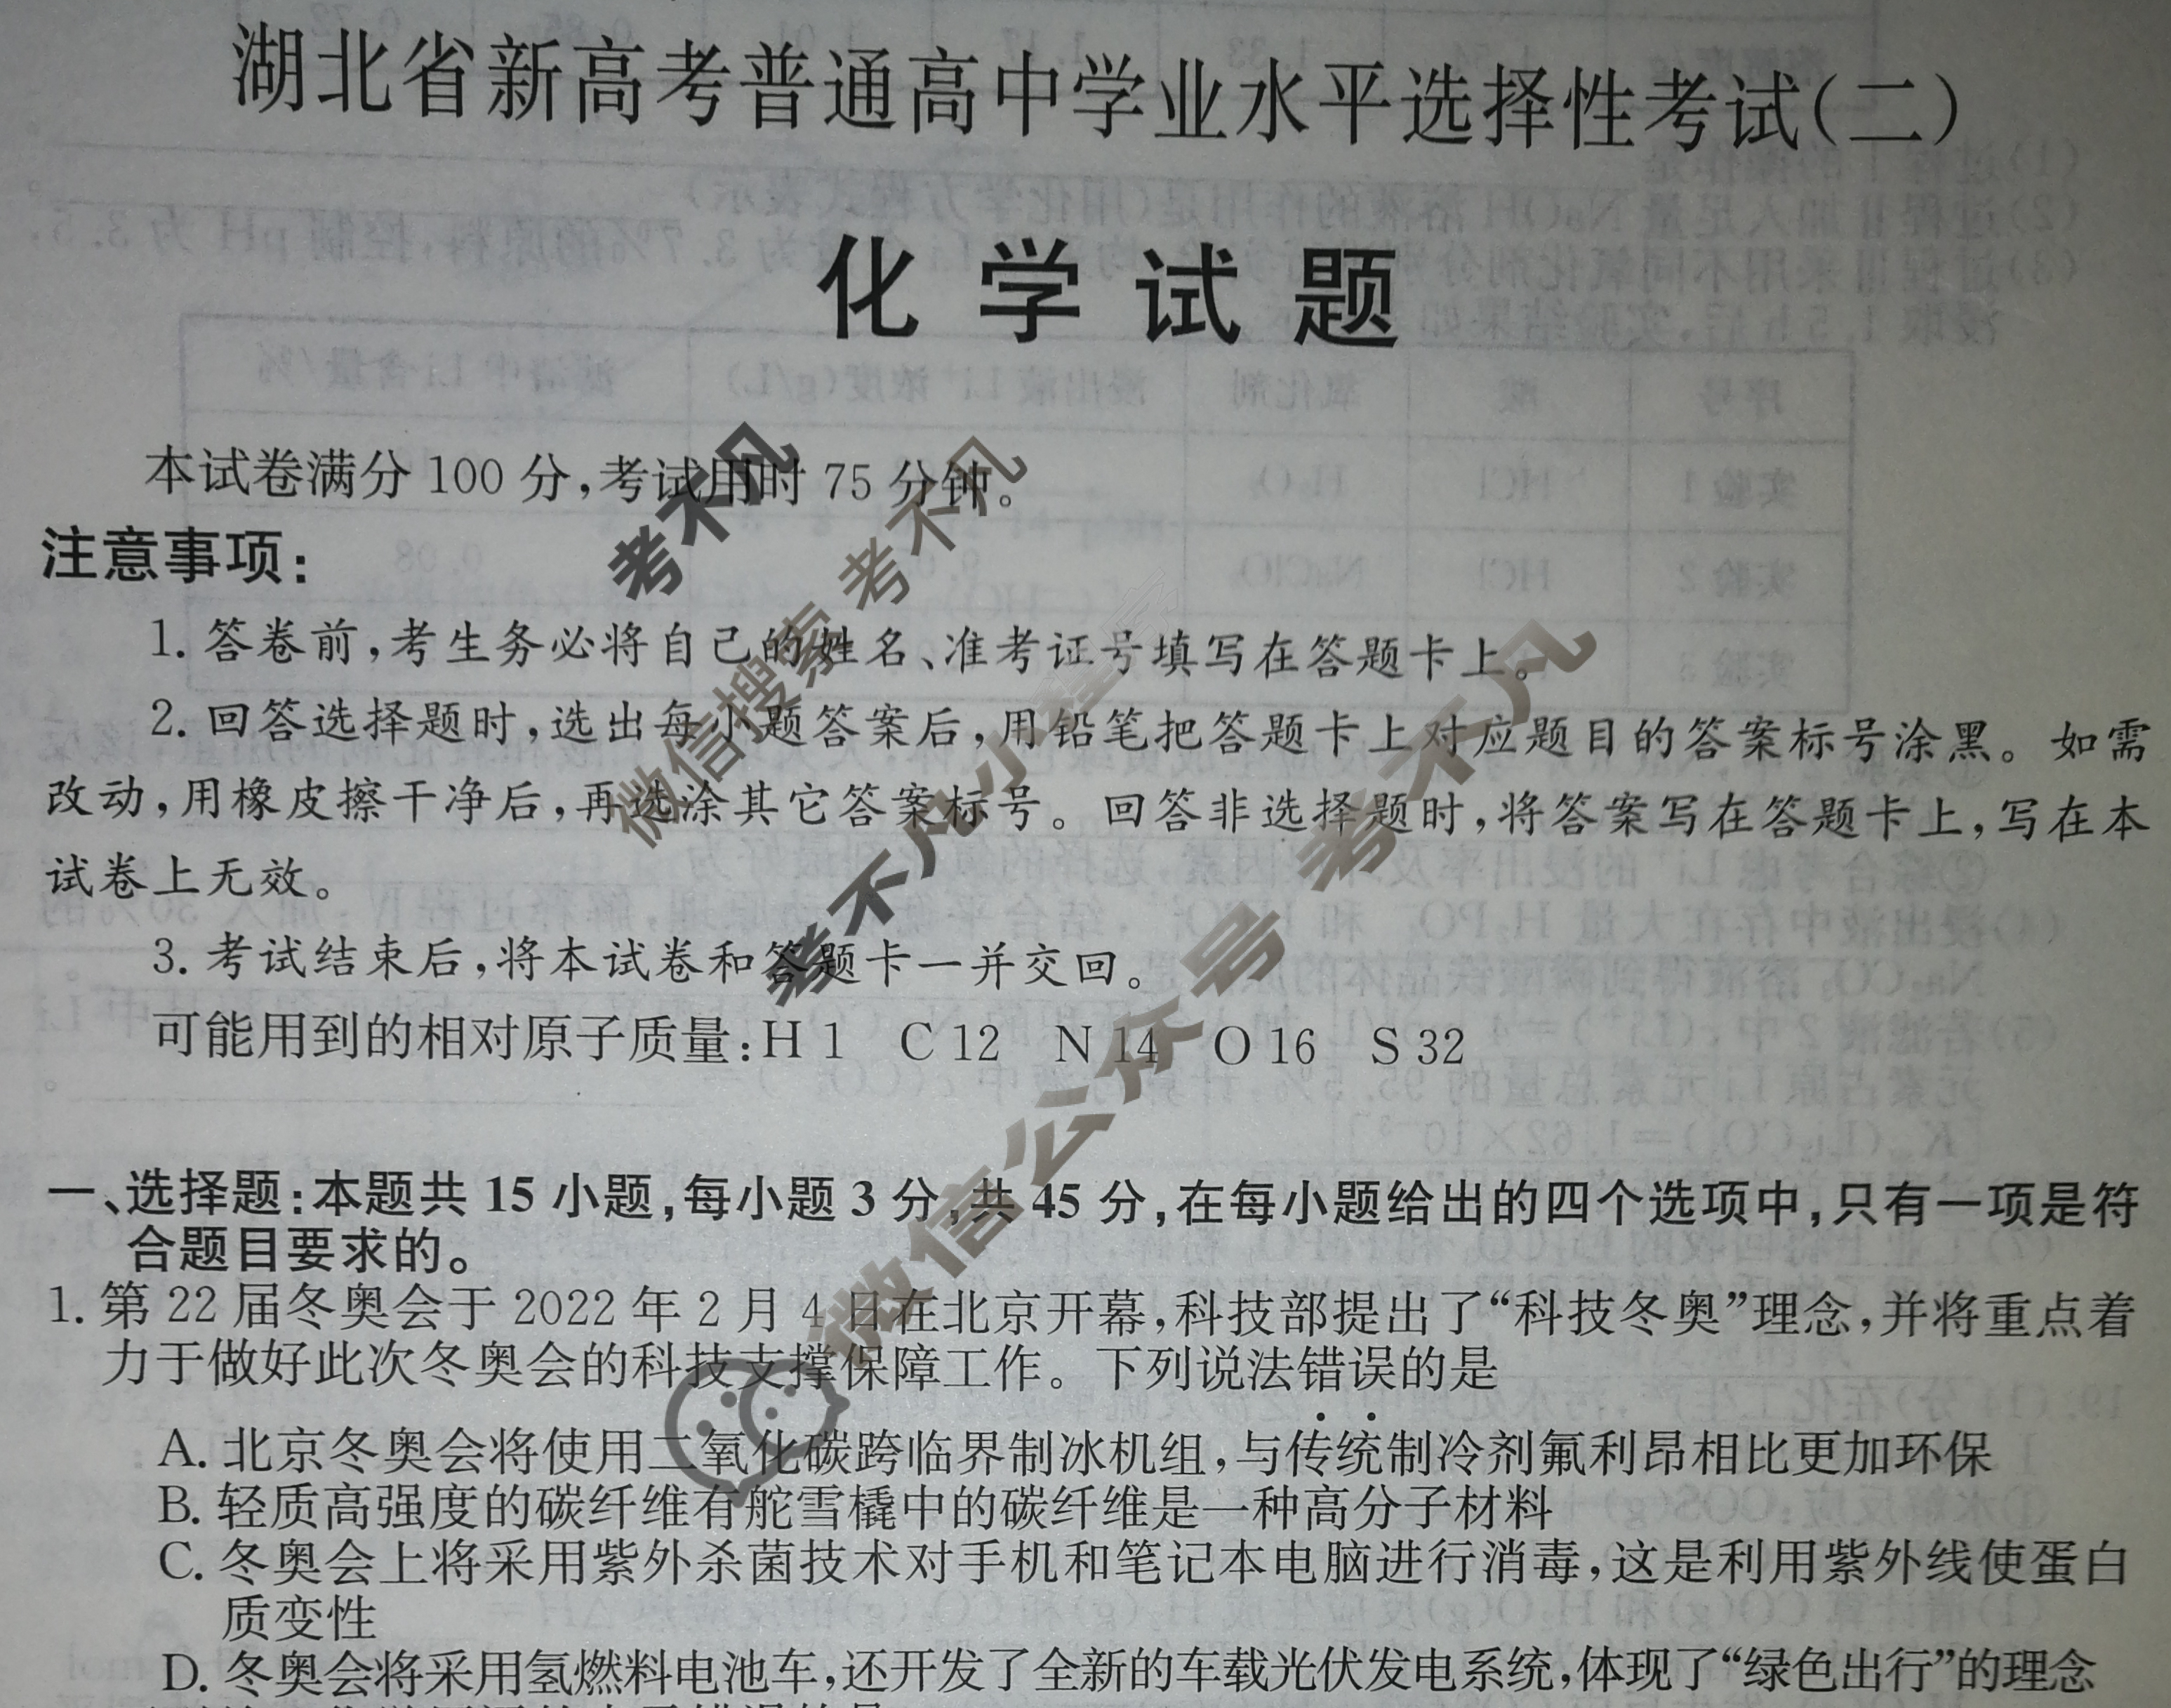 湖北省新高考普通高中学业水平选择性考试(二)
化学试题
本试卷满分 100 分,考试用时 75 分钟。
注意事项:
1. 答卷前,考生务必将自己的姓名、准考证号填写在答题卡上。
2. 回答选择题时,选出每小题答案后,用铅笔把答题卡上对应题目的答案标号涂黑。如需
改动,用橡皮擦干净后,再选涂其它答案标号。回答非选择题时,将答案写在答题卡上,写在本
试卷上无效。
3. 考试结束后,将本试卷和答题卡一并交回。
可能用到的相对原子质量:H 1 C 12 N 14 O 16 S 32
一、选择题:本题共 15 小题,每小题 3 分,共 45 分,在每小题给出的四个选项中,只有一项是符
合题目要求的。
1. 第 22 届冬奥会于 2022 年 2 月 4 日在北京开幕,科技部提出了“科技冬奥”理念,并将重点着
力于做好此次冬奥会的科技支撑保障工作。下列说法错误的是
A. 北京冬奥会将使用二氧化碳跨临界制冰机组,与传统制冷剂氟利昂相比更加环保
B. 轻质高强度的碳纤维有舵雪橇中的碳纤维是一种高分子材料
C. 冬奥会上将采用紫外杀菌技术对手机和笔记本电脑进行消毒,这是利用紫外线使蛋白
质变性
D. 冬奥会将采用氢燃料电池车,还开发了全新的车载光伏发电系统,体现了“绿色出行”的理念
考不凡
微信搜索 考不凡
考不凡小程序
微信公众号 考不凡